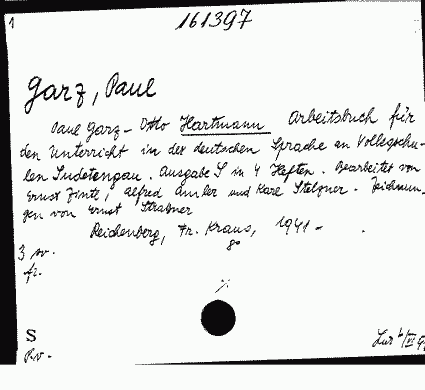 1
161397
Garz, Paul
Paul Garz - Otto Hartmann Arbeitsbuch für
den Unterricht in der deutschen Sprache an Volksschu-
len Sudetengau. Ausgabe S in 4 Heften. Bearbeitet von
Ernst Zintl, Alfred Amler und Karl Stelzner. Zeichnun-
gen von Ernst
Reichenberg, Fr. Kraus, 1941 -
8°
3 sv.
fr.
S